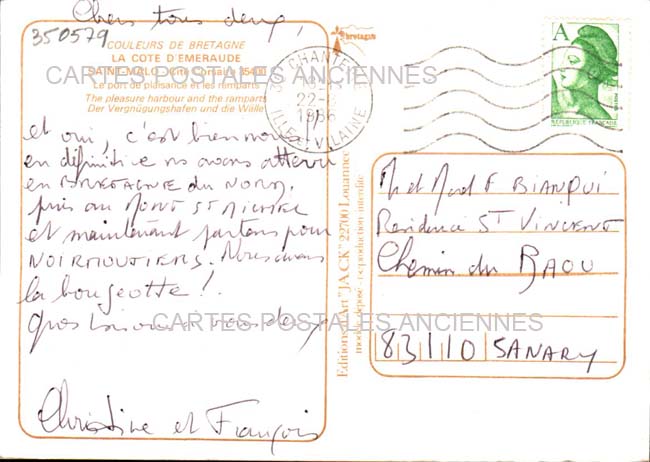 Chers tous deux,
350579
COULEURS DE BRETAGNE
LA COTE D'EMERAUDE
SAINT-MALO Cité Corsaire 35400
Le port de plaisance et les remparts
The pleasure harbour and the ramparts
Der Vergnügungshafen und die Wälle
et oui, c'est bien nous
en définitive ns avons atterri
en BRETAGNE du NORD,
puis au MONT ST MICHEL
et maintenant partons pour
NOIRMOUTIERS. Nous avons
la bougeotte !
Gros bisous à vous deux
Christine et François
bretagne
CHANTE
22
1986
ILLE & VILAINE
A
REPUBLIQUE FRANÇAISE
Editions d'Art "JACK" 22700 Louannec
modèle déposé - reproduction interdite
M et Mad F BIANQUI
Residence ST VINCENT
Chemin du BAOU
83110 SANARY
CARTES POSTALES ANCIENNES
CARTES POSTALES ANCIENNES